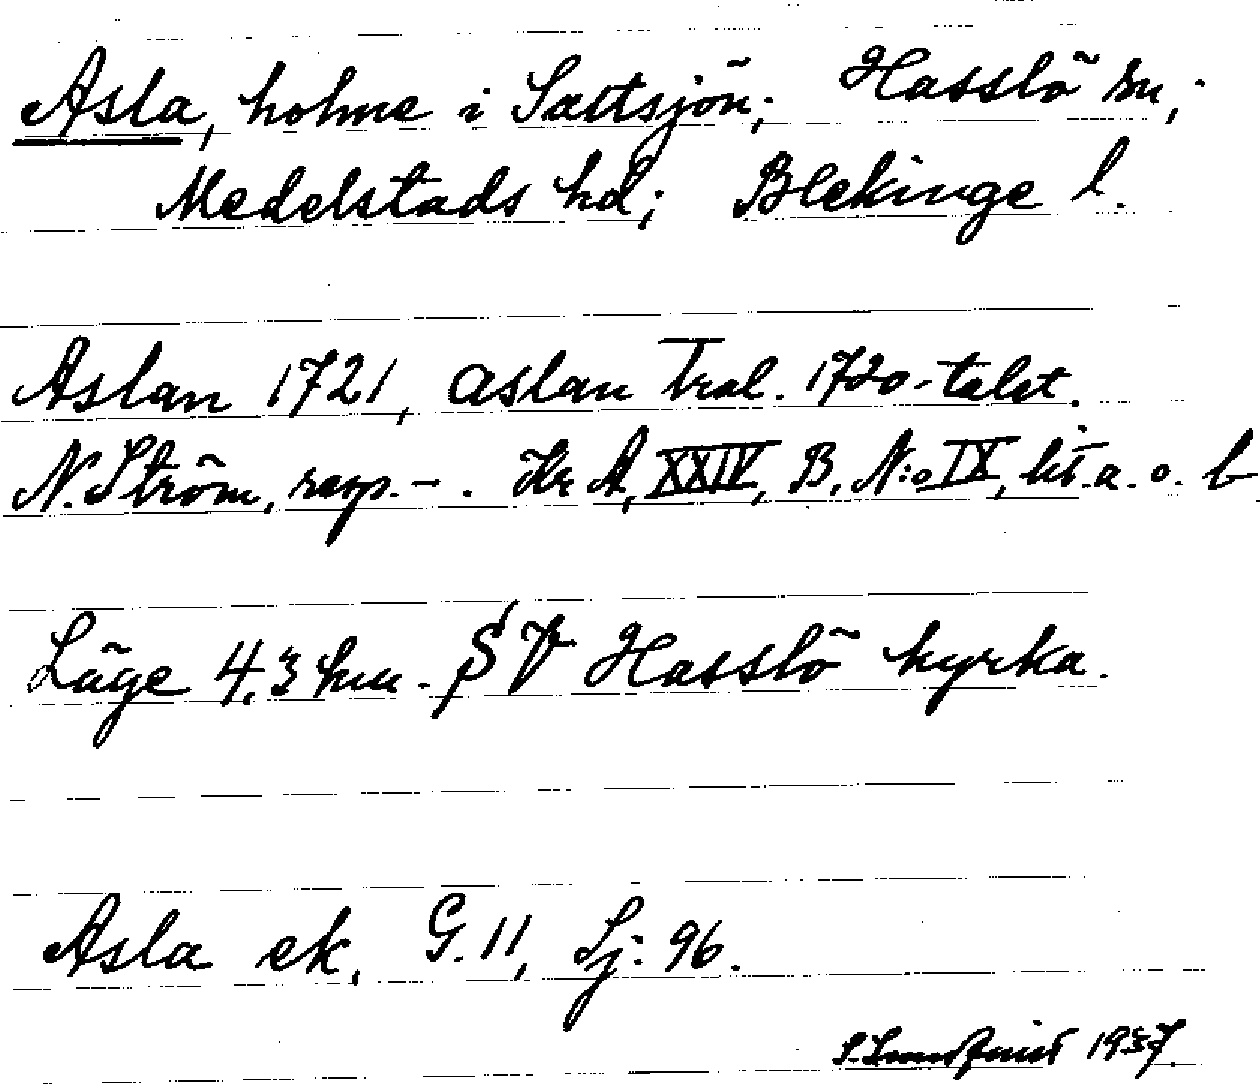 Asla, holme i Saltsjön; Hasslö sn,
Medelstads hd; Blekinge l.
Aslan 1721, aslan Tral. 1720-talet.
N. Ström, rasp. - . Kr A, XXIV, B. N:o IX, lit. a. o. b
Läge 4,3 km. SV Hasslö kyrka.
Asla ek. G. 11, Sj: 96.
S. Lundquist 1937.